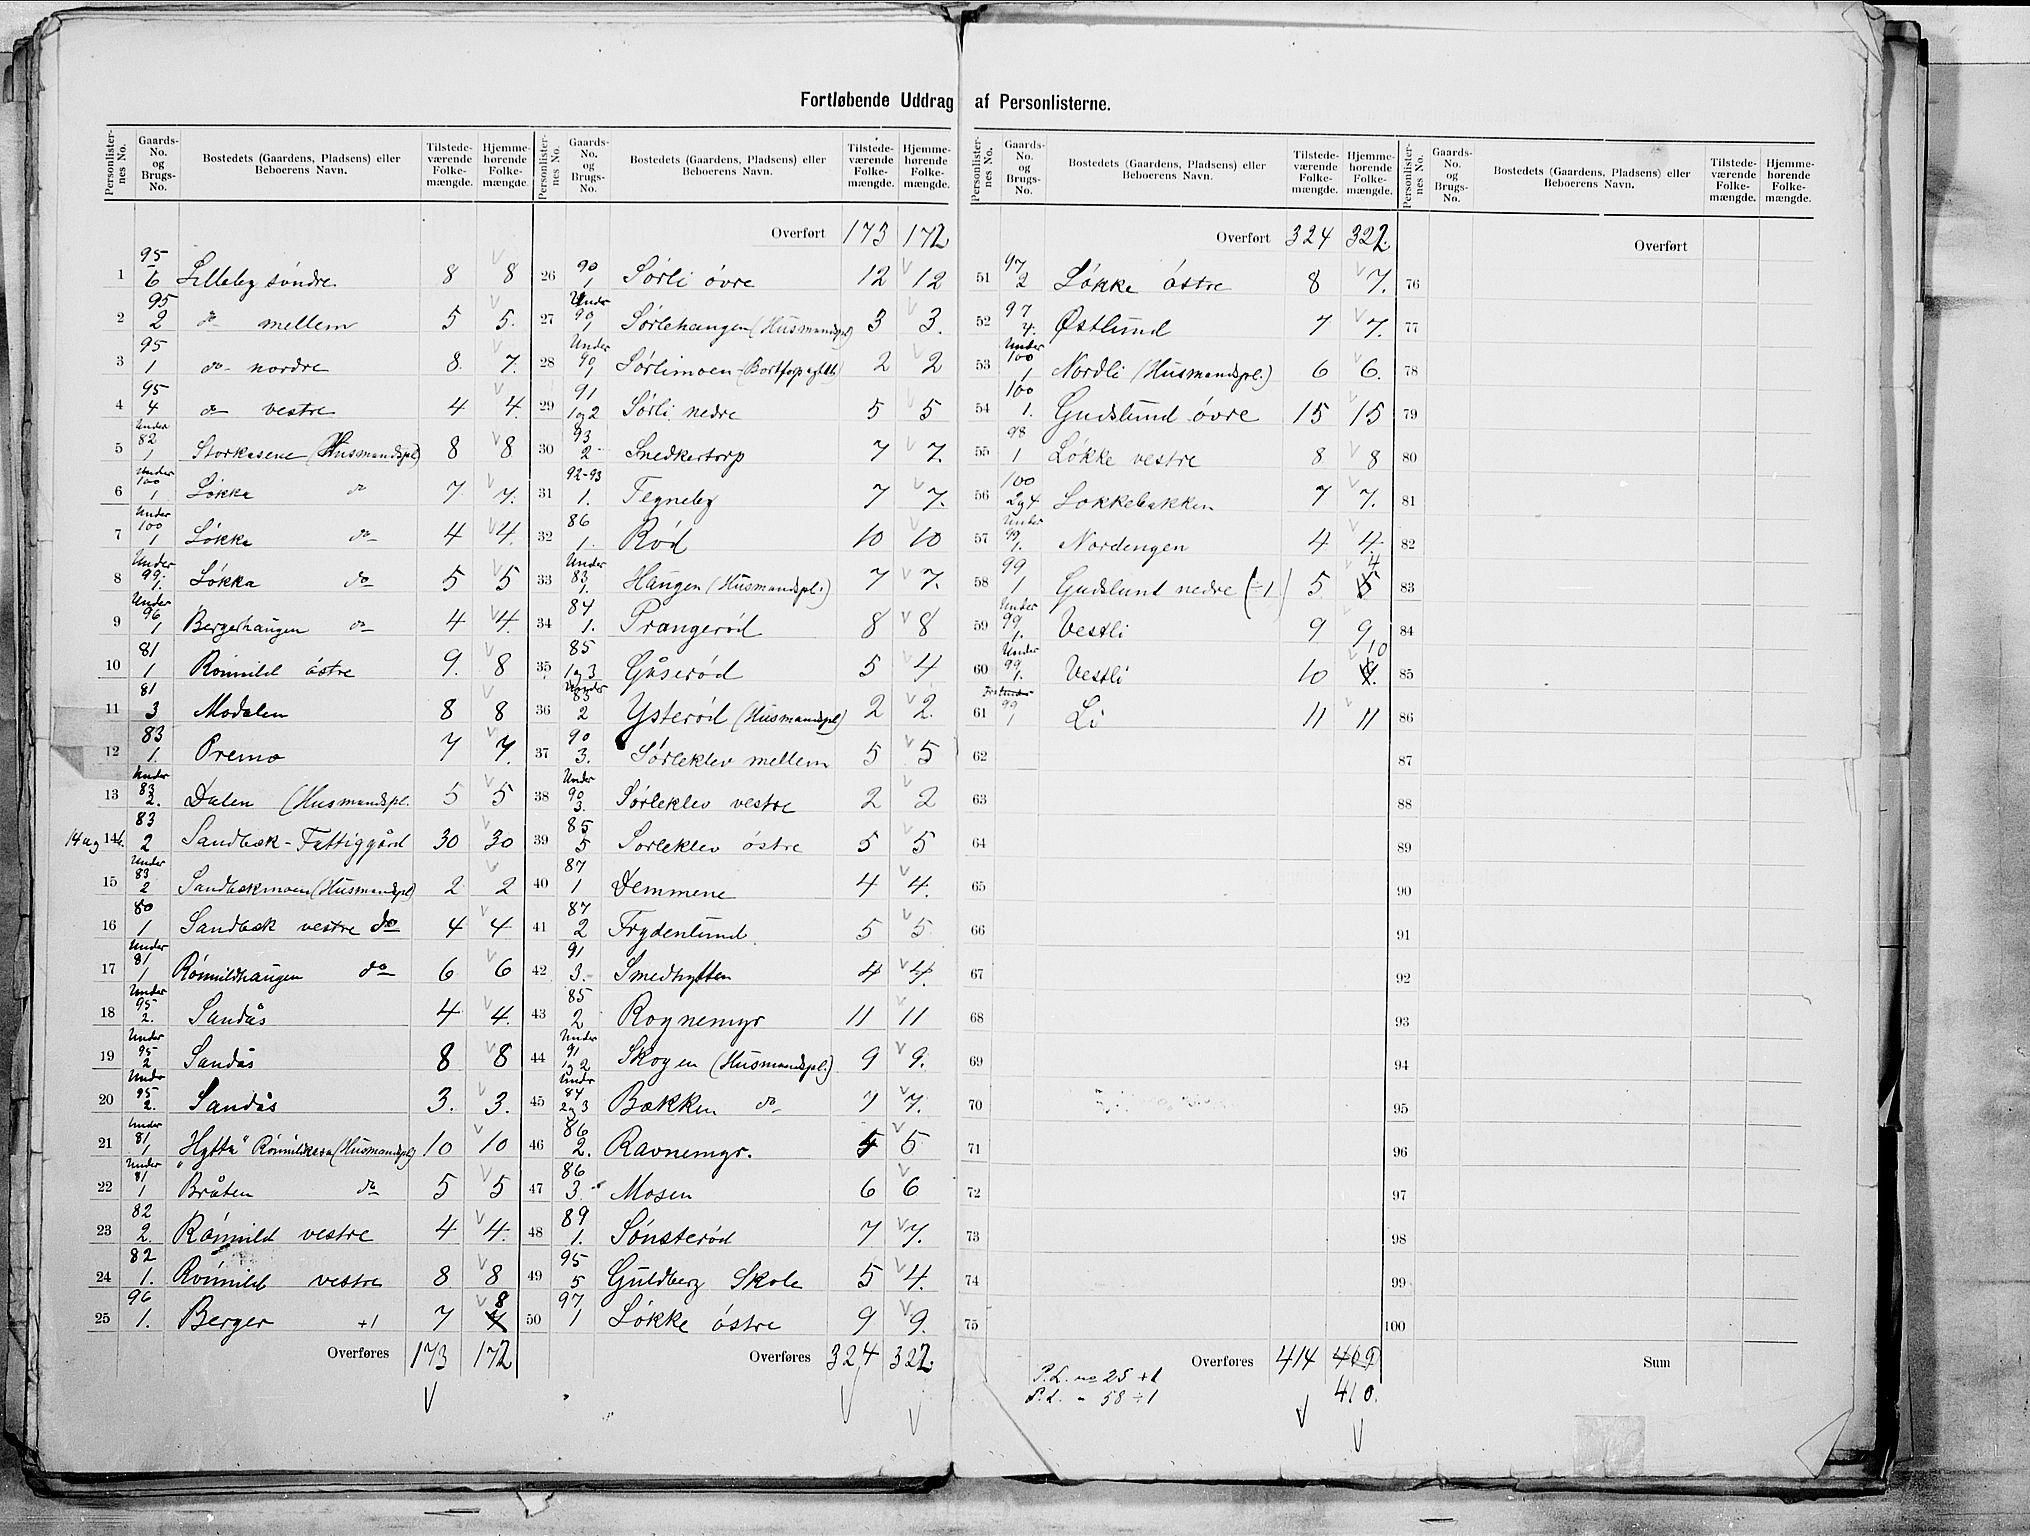 Fortløbende Uddrag af Personlisterne.
Personlisternes No. | Gaards-No. og Brugs-No. | Bostedets (Gaardens, Pladsens) eller Beboerens Navn. | Tilstedeværende Folkemængde. | Hjemmehørende Folkemængde.
1 | 95 6 | Lilleby søndre | 8 | 8
2 | 95 2 | do mellem | 5 | 5.
3 | 95 1 | do nordre | 8. | 7.
4 | 95 4 | do vestre | 4 | 4.
5 | Under 82 1 | Storkasene (Husmandspl) | 8 | 8
6 | Under 100 1. | Løkka do | 7. | 7.
7 | Under 100 1 | Løkka do | 4 | 4.
8 | Under 99. 1. | Løkka do | 5 | 5
9 | Under 96 1 | Bergerhaugen do | 4 | 4.
10 | 81 1 | Römild østre | 9. | 8
11 | 81 3 | Modalen | 8 | 8
12 | 83 1. | Premo | 7 | 7.
13 | Under 83 2. | Dalen (Husmandspl. | 5 | 5
14 | 83 2 | Sandbæk-Fattiggård | 30 | 30
15 | Under 83 2 | Sandbækmoen (Husmandspl) | 2 | 2
16 | 80 1 | Sandbæk vestre do | 4 | 4
17 | Under 81 1 | Römildhaugen do | 6 | 6
18 | Under 95 2. | Sandås | 4 | 4.
19 | Under 95 2 | Sandås | 8 | 8
20 | Under 95 2. | Sandås | 3. | 3.
21 | Under 81 1 | "Hytta" Römildkasa (Husmandspl) | 10 | 10
22 | Under 81 1 | Bråten do | 5 | 5
23 | 82 2. | Römild vestre | 4 | 4.
24 | 82 1. | Römild vestre | 8 | 8
25 | 96 1. | Berger +1 | 7 | 8
Overføres 173 172
Personlisternes No. | Gaards-No. og Brugs-No. | Bostedets (Gaardens, Pladsens) eller Beboerens Navn. | Tilstedeværende Folkemængde. | Hjemmehørende Folkemængde.
Overført 173 172
26 | 90 1 | Sørli øvre | 12 | 12
27 | Under 90 1 | Sørlehaugen (Husmandspl) | 3 | 3.
28 | Under 90 1 | Sørlimoen | 2 | 2
29 | 91 1og2 | Sørli nedre | 5 | 5
30 | 93 2 | Snedkertorp | 7 | 7.
31 | 92-93 1. | Tegneby | 7 | 7.
32 | 86 1. | Rød | 10 | 10
33 | Under 83 1. | Haugen (Husmandspl.) | 7 | 7.
34 | 84 1. | Prangerød | 8 | 8
35 | 85 1og3 | Gåserød | 5 | 4
36 | Under 85 2 | Ysterød (Husmandspl) | 2 | 2.
37 | 90 3. | Sørleklev mellem | 5 | 5
38 | Under 90 3. | Sørleklev vestre | 2 | 2
39 | 85 5 | Sørleklev østre | 5 | 5
40 | 87 1 | Demmene | 4 | 4.
41 | 87 2 | Frydenlund | 5 | 5
42 | 91 3. | Smedhytten | 4 | 4.
43 | 85 2 | Rognemyr | 11 | 11
44 | Under 91 1og2 | Skogen (Husmandspl.) | 9 | 9.
45 | Under 84 2og3 | Bækken do | 7 | 7.
46 | 86 2. | Ravnemyr. | 5 | 5
47 | 86 3. | Mosen | 6 | 6
48 | 89 1. | Sønsterød | 7 | 7.
49 | 95 5 | Guldberg Skole | 5 | 4.
50 | 97 1 | Løkke østre | 9 | 9.
Overføres 324 322.
Personlisternes No. | Gaards-No. og Brugs-No. | Bostedets (Gaardens, Pladsens) eller Beboerens Navn. | Tilstedeværende Folkemængde. | Hjemmehørende Folkemængde.
Overført 324 322.
51 | 97 2 | Løkke østre | 8 | 7.
52 | 97 4. | Østlund | 7 | 7.
53 | Under 100 1 | Nordli (Husmandspl.) | 6 | 6.
54 | 100 1. | Gudslund øvre | 15 | 15
55 | 98 1 | Løkke vestre | 8 | 8
56 | 100 2og4 | Løkkebakken | 7 | 7.
57 | Under 99 1. | Nordengen | 4 | 4.
58 | 99 1 | Gudslund nedre (÷1) | 5 | 5 4
59 | Under 99 1. | Vestli | 9 | 9
60 | Under 99 1. | Vestli | 10 | 10
61 | 99 1 | Li | 11 | 11
62
63
64
65
66
67
68
69
70
71
72
73
74
75
Overføres 414 409
410.
P.L. no 25 +1
P.L. " 58 ÷1
Personlisternes No. | Gaards-No. og Brugs-No. | Bostedets (Gaardens, Pladsens) eller Beboerens Navn. | Tilstedeværende Folkemængde. | Hjemmehørende Folkemængde.
Overført
76
77
78
79
80
81
82
83
84
85
86
87
88
89
90
91
92
93
94
95
96
97
98
99
100
Sum